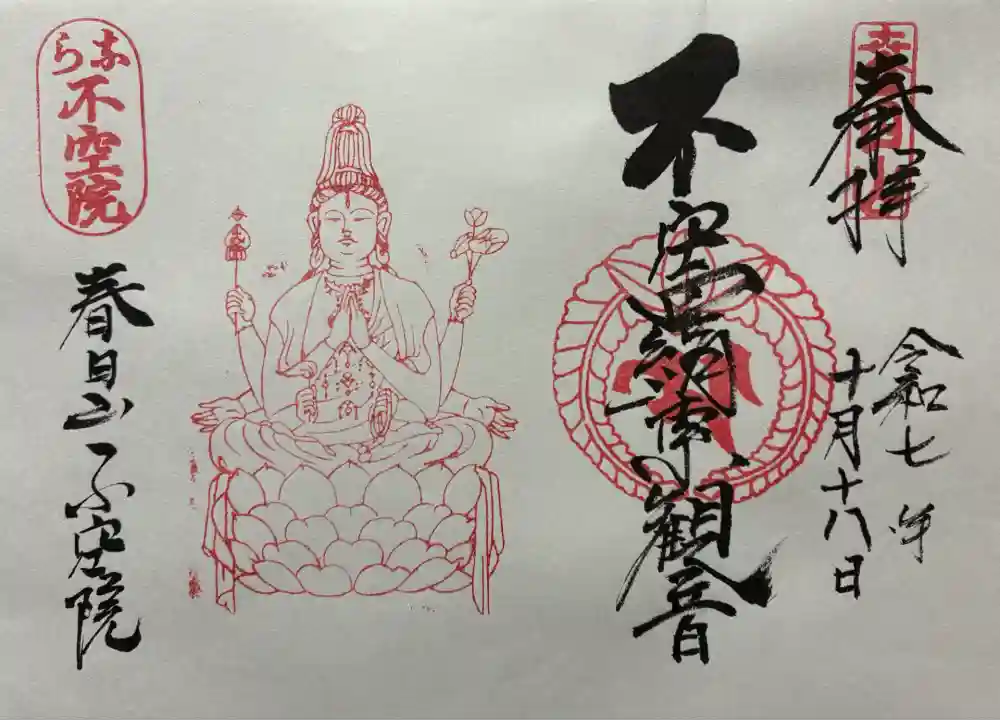 奉拝
令和七年
十月十八日
不空羂索観音
なら
不空院
春日山不空院